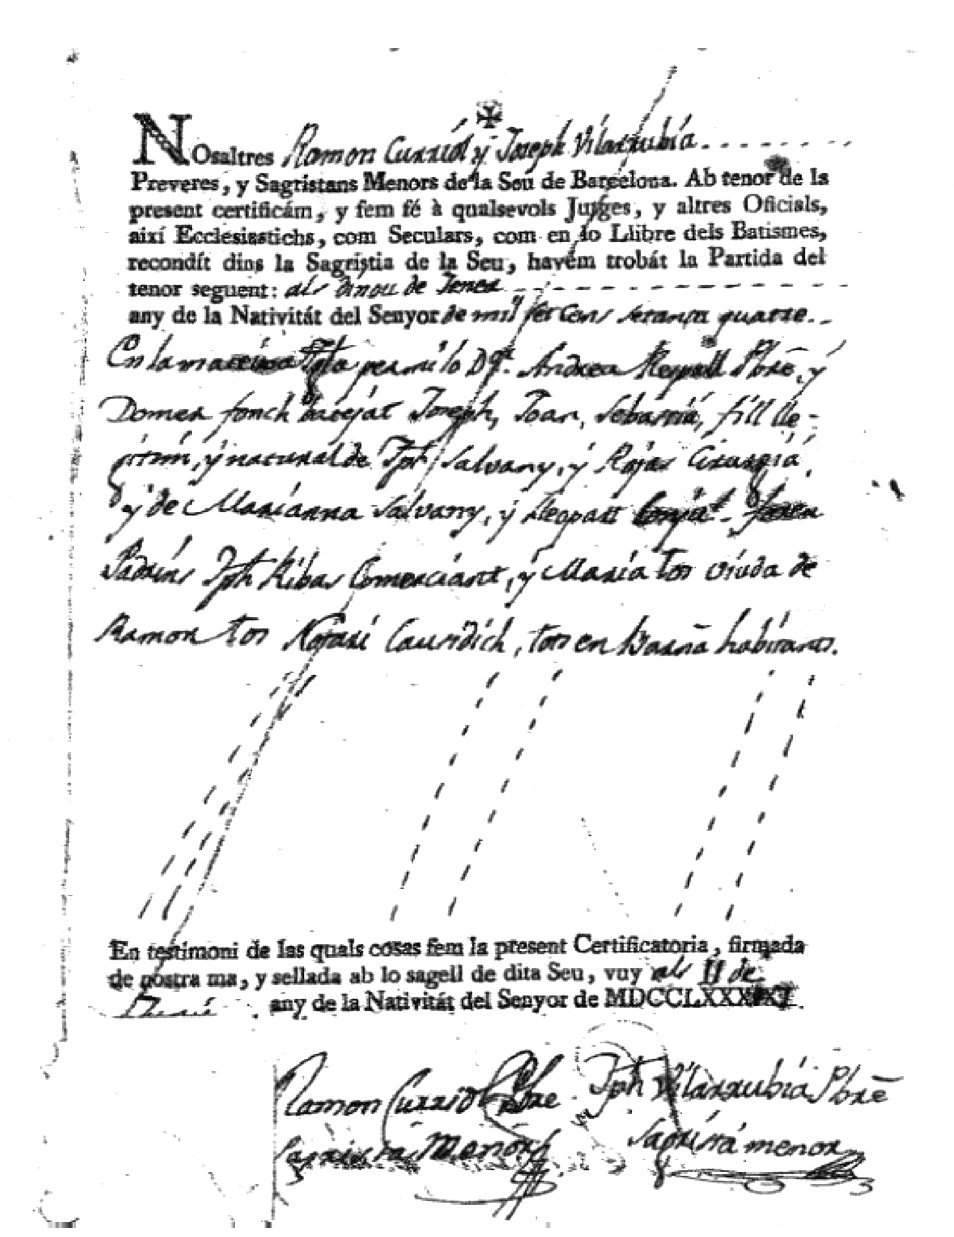 NOsaltres Ramon Curriol y Joseph Vilarrubía
Preveres, y Sagristans Menors de la Seu de Barcelona. Ab tenor de la
present certificám, y fem fé à qualsevols Jutges, y altres Oficials,
així Ecclesiastichs, com Seculars, com en lo Llibre dels Batismes,
recondít dins la Sagristia de la Seu, havém trobát la Partida del
tenor seguent: als dinou de Jener
any de la Nativitát del Senyor de mil y set cens setanta quatre.
En la mateixa Ipta per mi lo Dr. Andreu Pbre, y
Domer fonch batejat Joseph, Joan, Sebastiá, fill lle-
gitim, y natural de Jph Salvany, y Rojas Cirurgiá,
y de Marianna Salvany, y Llopart conjut. foren
Padrins Jph Ribas Comerciant, y Maria Tos viuda de
Ramon Tos Notari Causidich, tots en Barna habitants.
En testimoni de las quals cosas fem la present Certificatoria, firmada
de nostra ma, y sellada ab lo sagell de dita Seu, vuy als 11 de
any de la Nativitát del Senyor de
Ramon Curriol Pbre Jph Vilarrubía Pbre
Sagristá Menor Sagristá menor